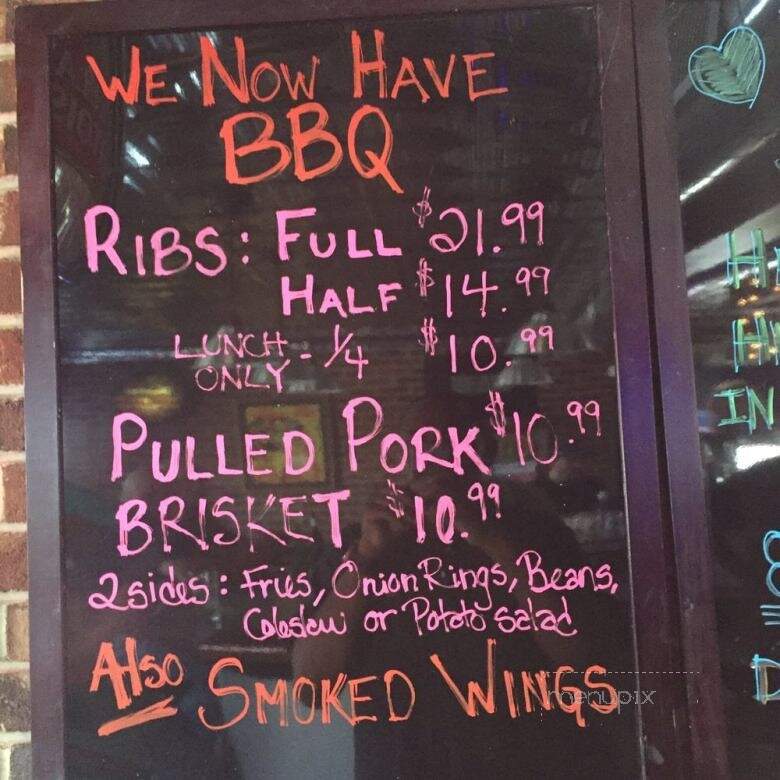 WE NOW HAVE
BBQ
RIBS: FULL $21.99
HALF $14.99
LUNCH ONLY - 1/4 $10.99
PULLED PORK $10.99
BRISKET $10.99
2 sides: Fries, Onion Rings, Beans,
Coleslaw or Potato Salad
Also SMOKED WINGS
menupix
IN